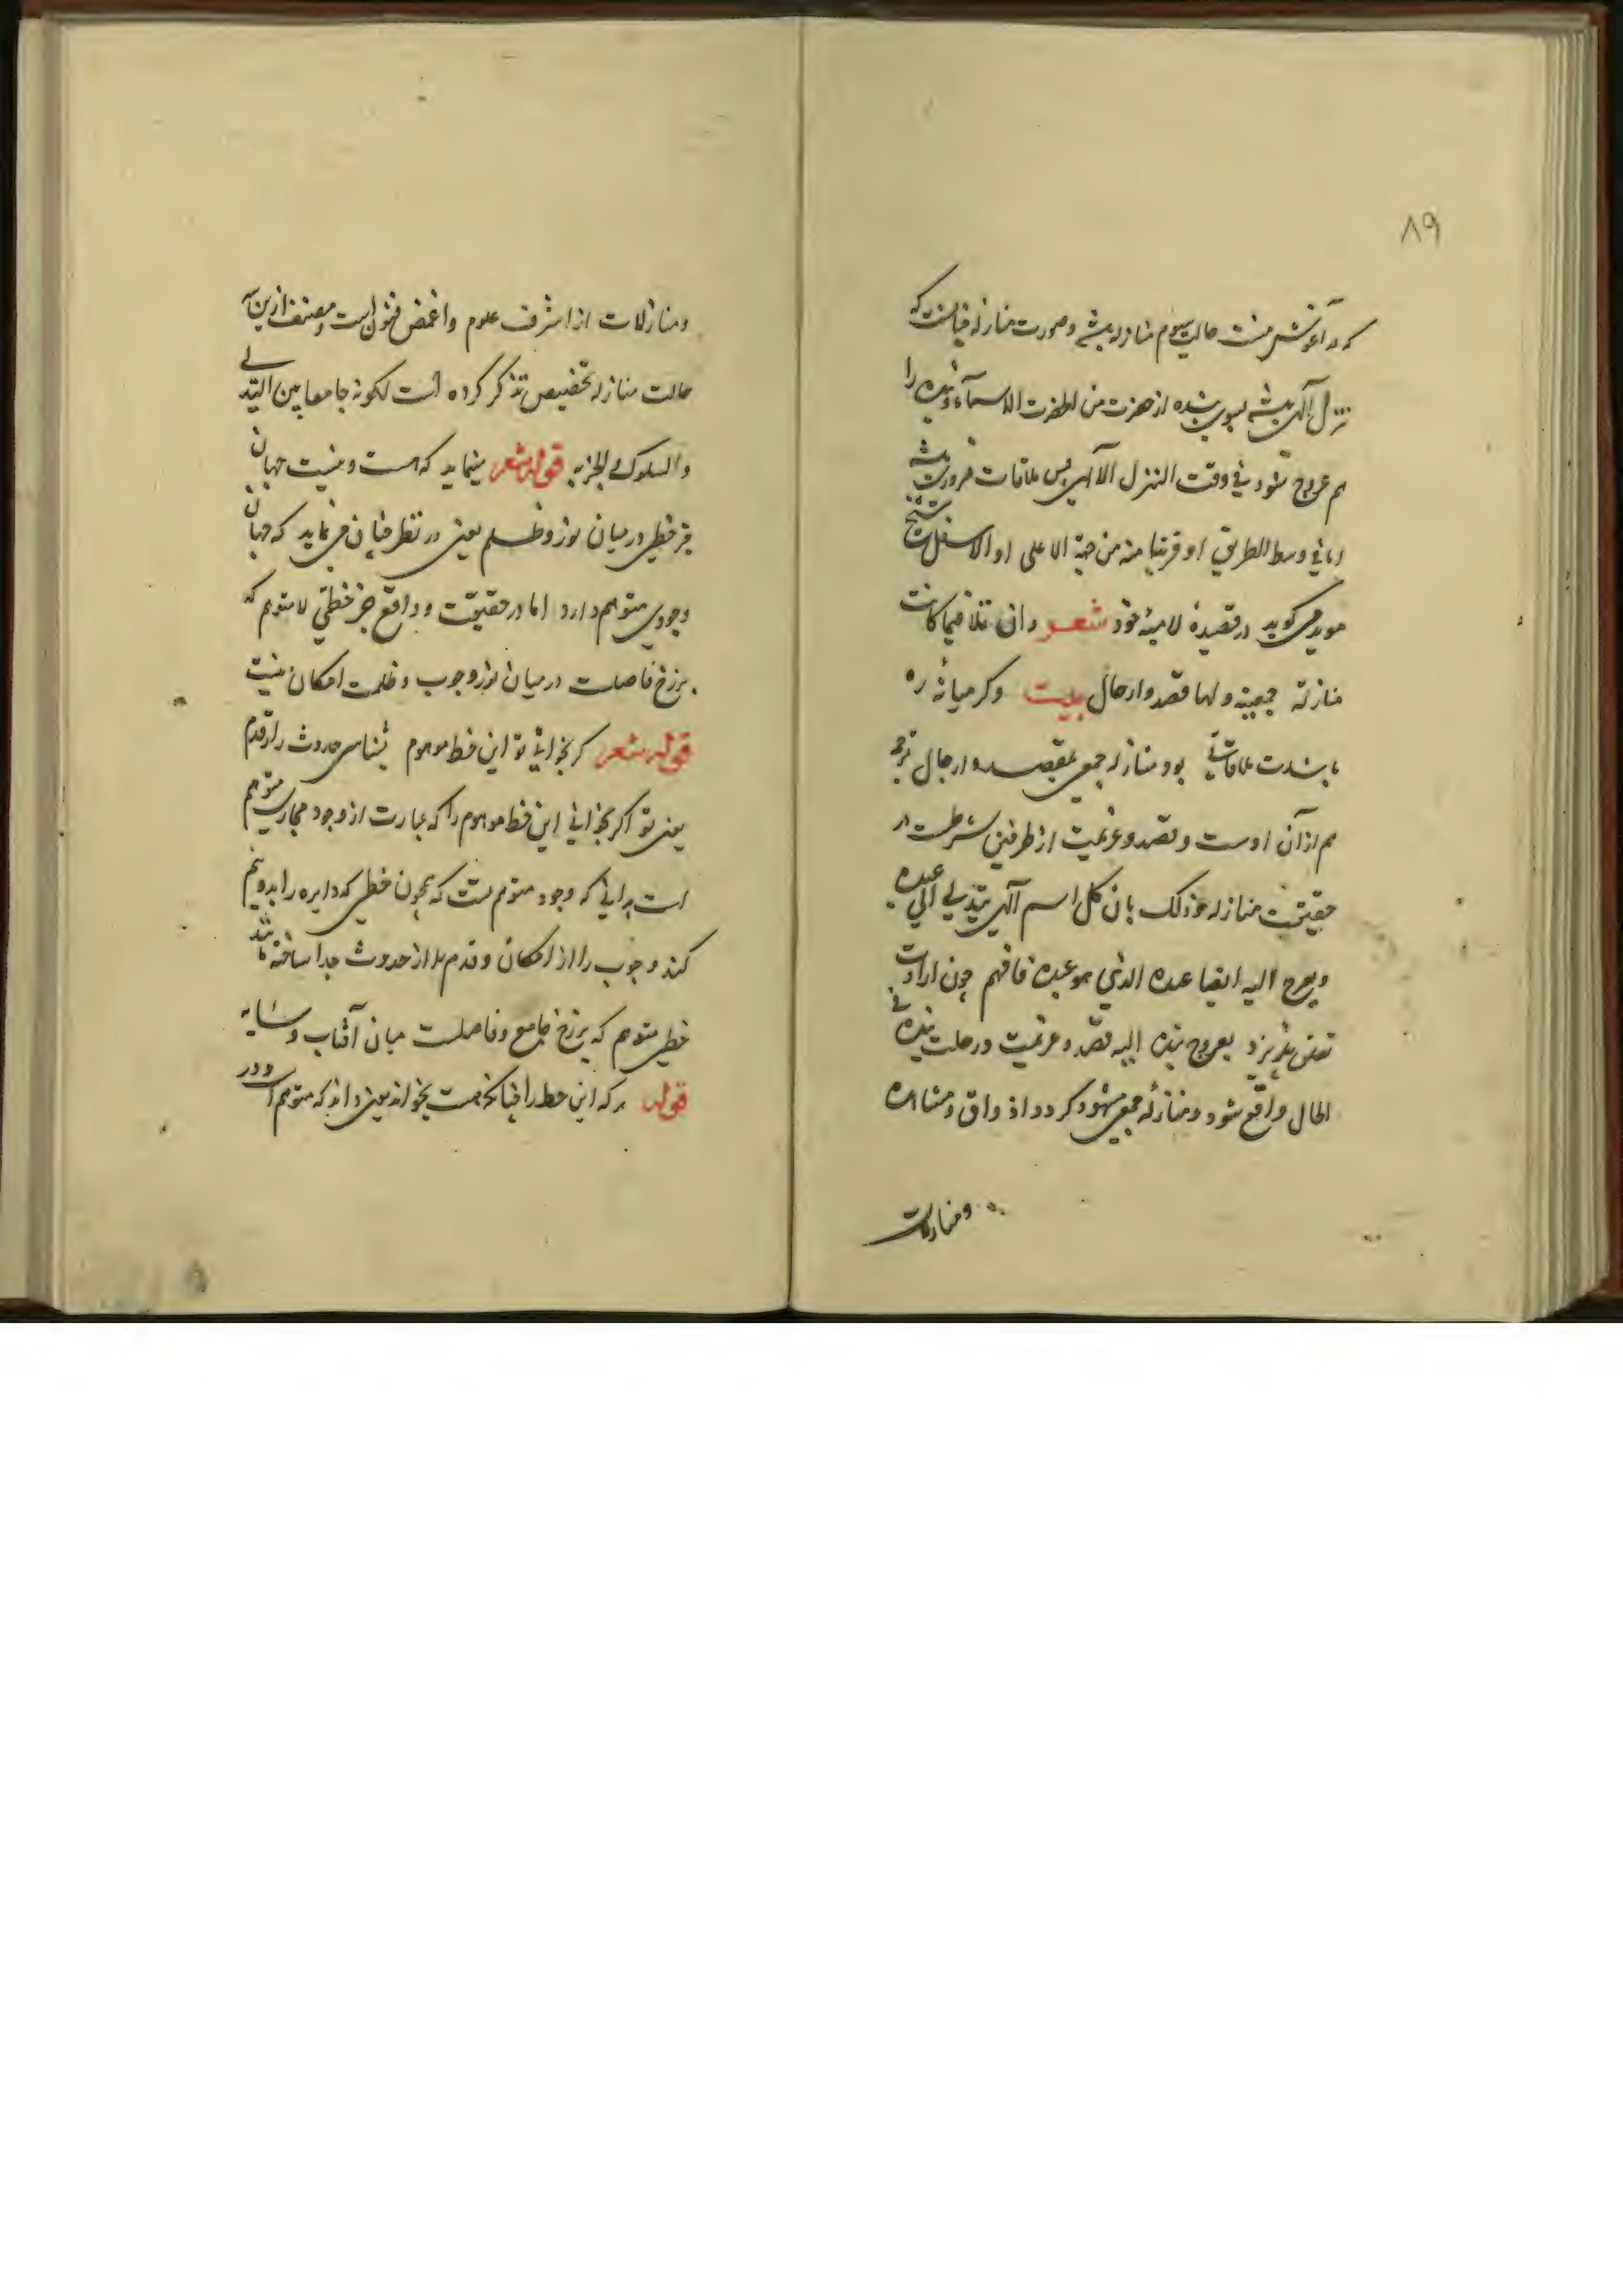 ۸۹
که در آغوش منست حالت سیوم منازله باشد و صورت منازله چنانست که
تنزل آلهی باشد بسوی بنده از حضرت من لحضرت الاسماء و بنده را
هم عروج شود فی وقت التنزل الآلهی پس ملاقات ضرورت باشد
اما فی وسط الطریق او قریبا منه من جهة الاعلی او الاسفل شیخ
موید می گوید در قصیدهٔ لامیهٔ خود شعر وان تلاقینا کانت
منازلة جمعیة ولها قصد وارحال بیت وگر میانهٔ ره
باشدت ملاقاتی بود منازله جمعی بقصد و ارحال ترجمه
هم از آن اوست و قصد و عزیمت از طرفین شرطست در
حقیقت منازله و ذلک بان کل اسم آلهی یتدلی الی عبده
ویعرج الیه ایضا عبده الذی هو عبده فافهم چون ارادت
تعلق پذیرد بعروج بنده الیه قصد و عزیمت و رحلت بنده فی
الحال واقع شود و منازلهٔ جمعی مشهود گردد و اذواق و مشاهده
ومنازلات
ومنازلات از اشرف علوم واغمض فنون است و مصنف ازین سه
حالت منازله بتخصیص تذکر کرده است لکونه جامعا بین التدلی
والسلوک والجذبه قوله شعر مینماید که هست و نیست جهان
جز خطی در میان نور و ظلم یعنی در نظر چنان می نماید که جهان
وجودی متوهم دارد اما در حقیقت و واقع جز خطی لامتوهم که
برزخ فاصلست در میان نور وجوب و ظلمت امکان نیست
قوله شعر گر بخوانی تو این خط موهوم بشناسی حدوث را ز قدم
یعنی تو اگر بخوانی این خط موهوم را که عبارت از وجود مجازی متوهم
است بدانی که وجود متوهمست که همچون خطی که دایره را بدو نیم
کند وجوب را از امکان و قدم را از حدوث جدا ساخته باشد
خطی متوهم که برزخ جامع و فاصلست میان آفتاب و سایه
قوله هر که این خط را چنانکه هست بخواند یعنی داند که متوهم است و در